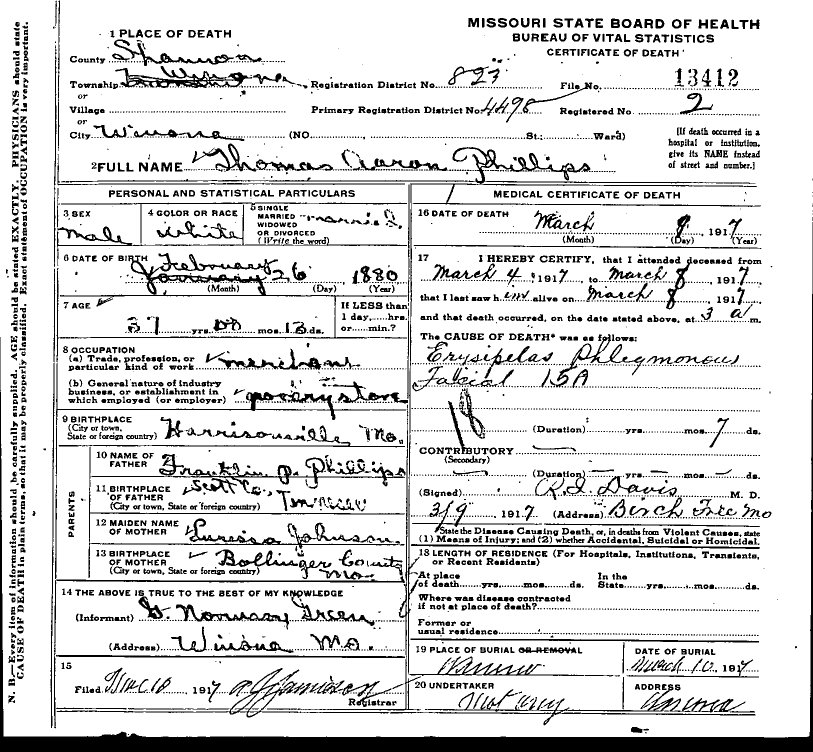 MISSOURI STATE BOARD OF HEALTH
BUREAU OF VITAL STATISTICS
CERTIFICATE OF DEATH
1 PLACE OF DEATH
County Shannon
Township Winona Registration District No. 823 File No. 13412
or
Village Primary Registration District No. 4498 Registered No. 2
or
City Winona (NO. St.; Ward)
[If death occurred in a hospital or institution, give its NAME instead of street and number.]
2 FULL NAME Thomas Aaron Phillips
PERSONAL AND STATISTICAL PARTICULARS
3 SEX 4 COLOR OR RACE 5 SINGLE MARRIED WIDOWED OR DIVORCED (Write the word)
male white married
6 DATE OF BIRTH February 26 1880
January
(Month) (Day) (Year)
7 AGE If LESS than 1 day,....hrs. or.....min.?
37 yrs. 00 mos. 13 ds.
8 OCCUPATION
(a) Trade, profession, or particular kind of work merchant
(b) General nature of industry business, or establishment in which employed (or employer) store
9 BIRTHPLACE
(City or town, State or foreign country) Harrisonville Mo.
PARENTS
10 NAME OF FATHER Franklin P. Phillips
11 BIRTHPLACE OF FATHER Scott Co.
(City or town, State or foreign country)
12 MAIDEN NAME OF MOTHER Johnson
13 BIRTHPLACE OF MOTHER Bollinger County
(City or town, State or foreign country) Mo.
14 THE ABOVE IS TRUE TO THE BEST OF MY KNOWLEDGE
(Informant) G. Norman Green
(Address) Winona Mo.
15
Filed Mar 10 1917 Jamieson
Registrar
MEDICAL CERTIFICATE OF DEATH
16 DATE OF DEATH March 8, 1917
(Month) (Day) (Year)
17 I HEREBY CERTIFY, that I attended deceased from
March 4, 1917 to March 8 1917
that I last saw him alive on March 8 1917
and that death occurred, on the date stated above, at 3 a m.
The CAUSE OF DEATH* was as follows:
Erysipelas Phlegmonous
Facial 15A
18
(Duration) yrs. mos. 7 ds.
CONTRIBUTORY
(Secondary)
(Duration) yrs. mos. ds.
(Signed) R. I. Davis M. D.
3/9 1917 (Address) Birch Tree Mo
*State the Disease Causing Death, or, in deaths from Violent Causes, state
(1) Means of Injury; and (2) whether Accidental, Suicidal or Homicidal.
18 LENGTH OF RESIDENCE (For Hospitals, Institutions, Transients, or Recent Residents)
At place of death yrs. mos. ds. In the State yrs. mos. ds.
Where was disease contracted if not at place of death?
Former or usual residence
19 PLACE OF BURIAL OR REMOVAL DATE OF BURIAL
March 10, 1917
20 UNDERTAKER ADDRESS
Winona
N. B.—Every item of information should be carefully supplied. AGE should be stated EXACTLY. PHYSICIANS should state
CAUSE OF DEATH in plain terms, so that it may be properly classified. Exact statement of OCCUPATION is very important.